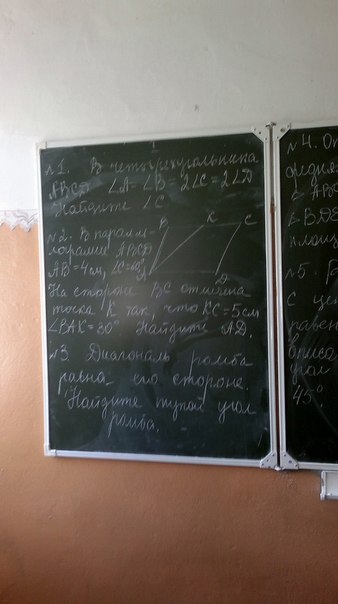 №1. В четырехугольника
ABCD ∠A=∠B=2∠C=2∠D
Найдите ∠C
B K C
№2. В паралле-
лограмм ABCD
AB=4см, ∠C=60°
D
На стороне BC отмечена
точка K так, что KC=5см
∠BAK=30° Найдите AD.
№3 Диагональ ромба
равна его стороне.
Найдите тупой угол
ромба.
№4.
∠ABC
∠BDE
площад
№5. В
с цен
равен
вписа
угол
45°